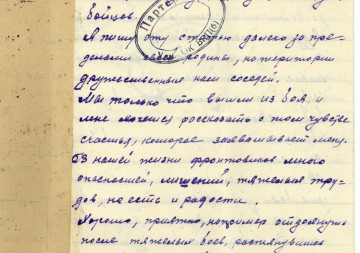 бойцов.
Парте
ЦК ВКП(б)
Я пишу эту статью далеко за пре-
делами своей родины, на территории
дружественных нам соседей.
Мы только что вышли из боя, и
мне хочется рассказать о том чувстве
счастья, которое захватывает меня.
В нашей жизни фронтовиков много
опасностей, лишений, тяжелых тру-
дов, но есть и радости.
Хорошо, приятно, например отдохнуть
после тяжелых боев, растянувшись